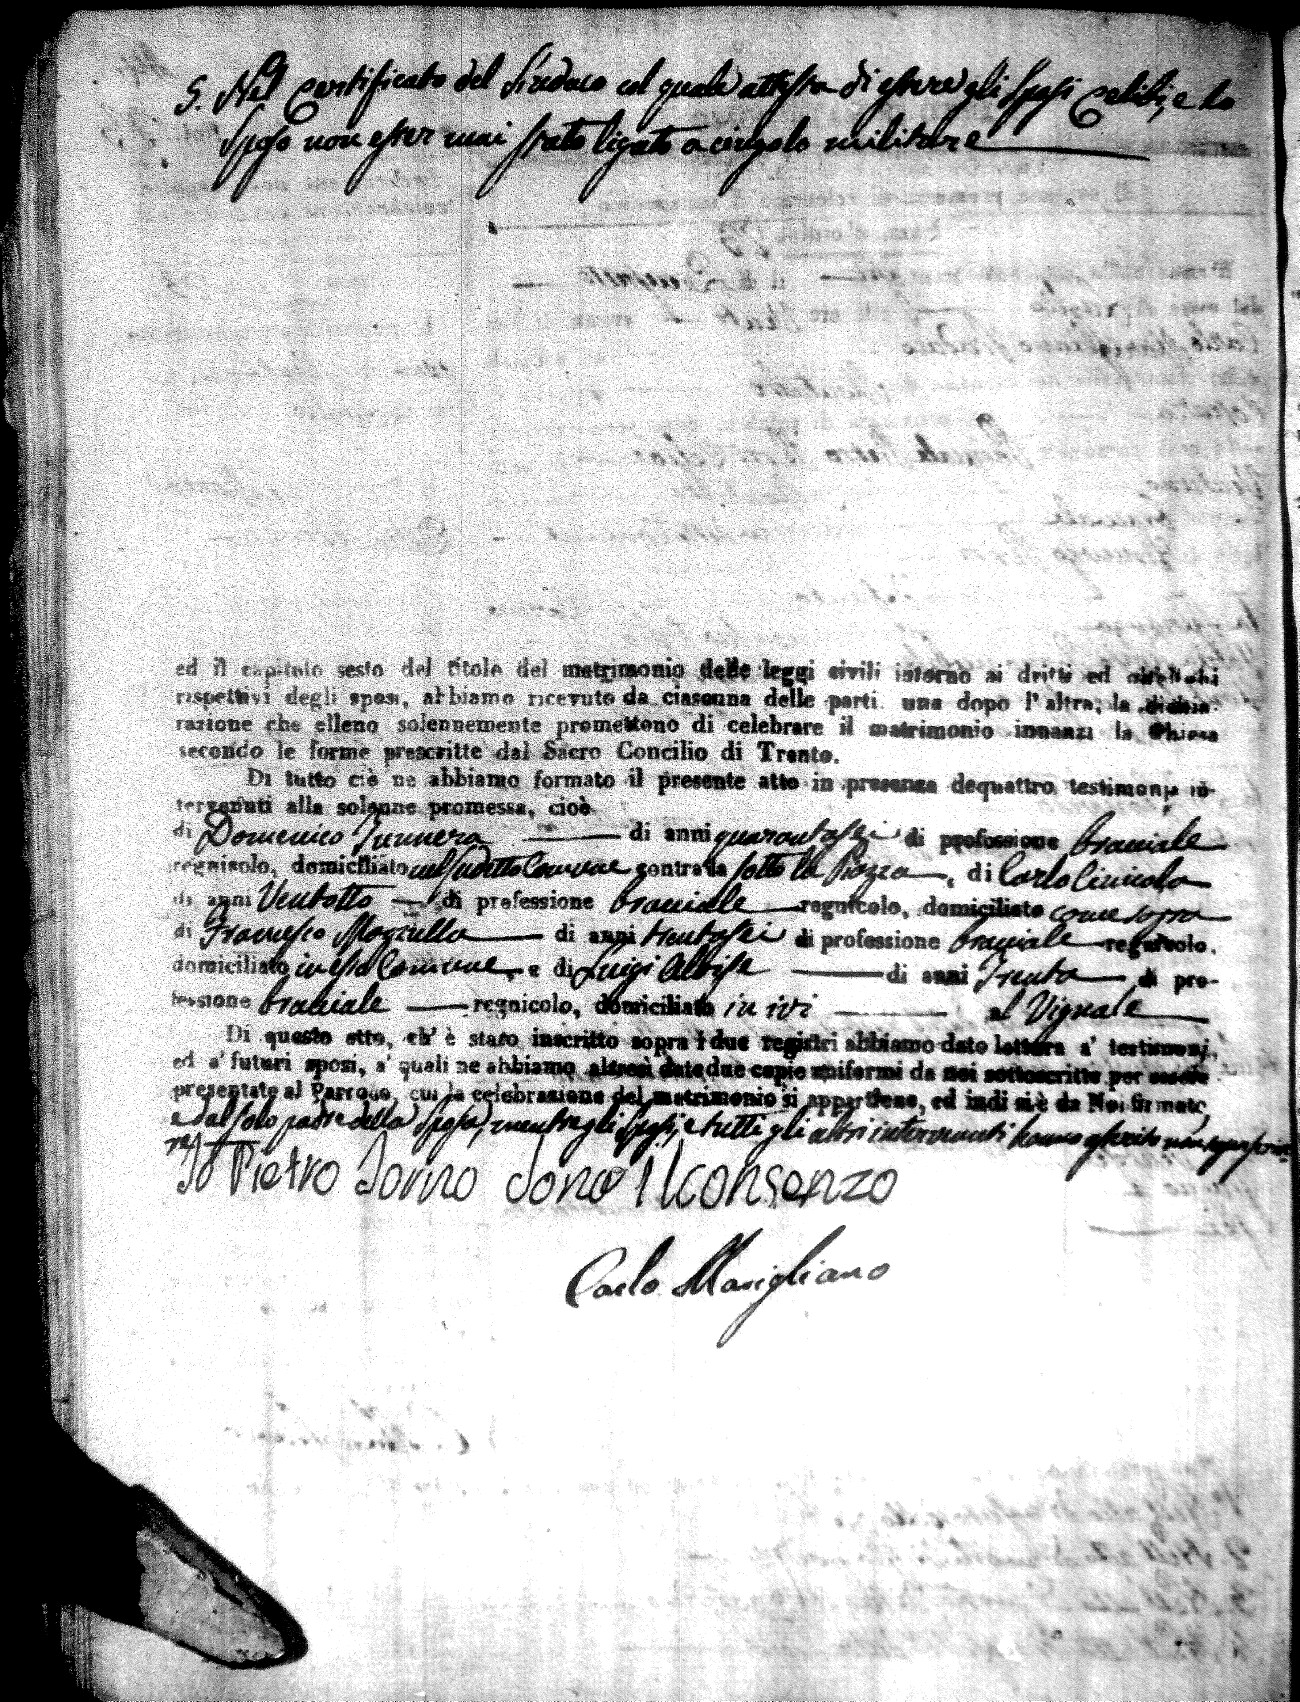 5. Nel Certificato del Sindaco col quale attesta di essere gli Sposi Celibi, e lo
Sposo non esser mai stato ligato a cingolo militare
ed il capitolo sesto del titolo del matrimonio delle leggi civili intorno ai dritti ed obblighi
rispettivi degli sposi, abbiamo ricevuto da ciascuna delle parti una dopo l'altra, la dichia-
razione che elleno solennemente promettono di celebrare il matrimonio innanzi la Chiesa
secondo le forme prescritte dal Sacro Concilio di Trento.
Di tutto ciò ne abbiamo formato il presente atto in presenza dequattro testimonj in-
tervenuti alla solenne promessa, cioè
di Domenico di anni quarantasei di professione bracciale
regnicolo, domiciliato nel sudetto Comune contrada sotto la Piazza, di Carlo
di anni Ventotto di professione bracciale regnicolo, domiciliato come sopra
di Francesco di anni trentasei di professione bracciale regnicolo,
domiciliato in esso Comune, e di Luigi di anni Trenta di pro-
fessione bracciale regnicolo, domiciliato in ivi al Vignale
Di questo atto, ch' è stato inscritto sopra i due registri abbiamo dato lettura a' testimonj,
ed a' futuri sposi, a' quali ne abbiamo altresì date due copie uniformi da noi sottoscritte per essere
presentate al Parroco, cui la celebrazione del matrimonio si appartiene, ed indi si è da Noi firmato,
e dal solo padre della Sposa, mentre gli Sposi, e tutti gli altri intervenuti hanno asserito non saper scrive-
re
Io Pietro Iorno dono Ilconsenzo
Carlo Marigliano